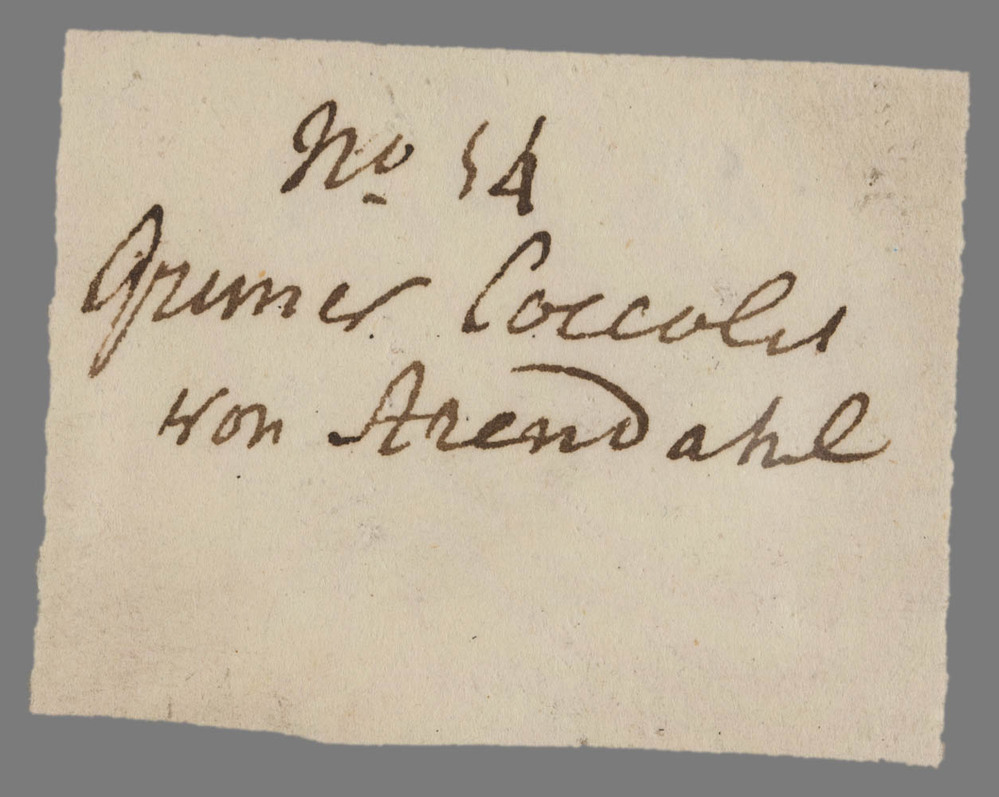 No 54
Gruner Coccolit
von Arendahl